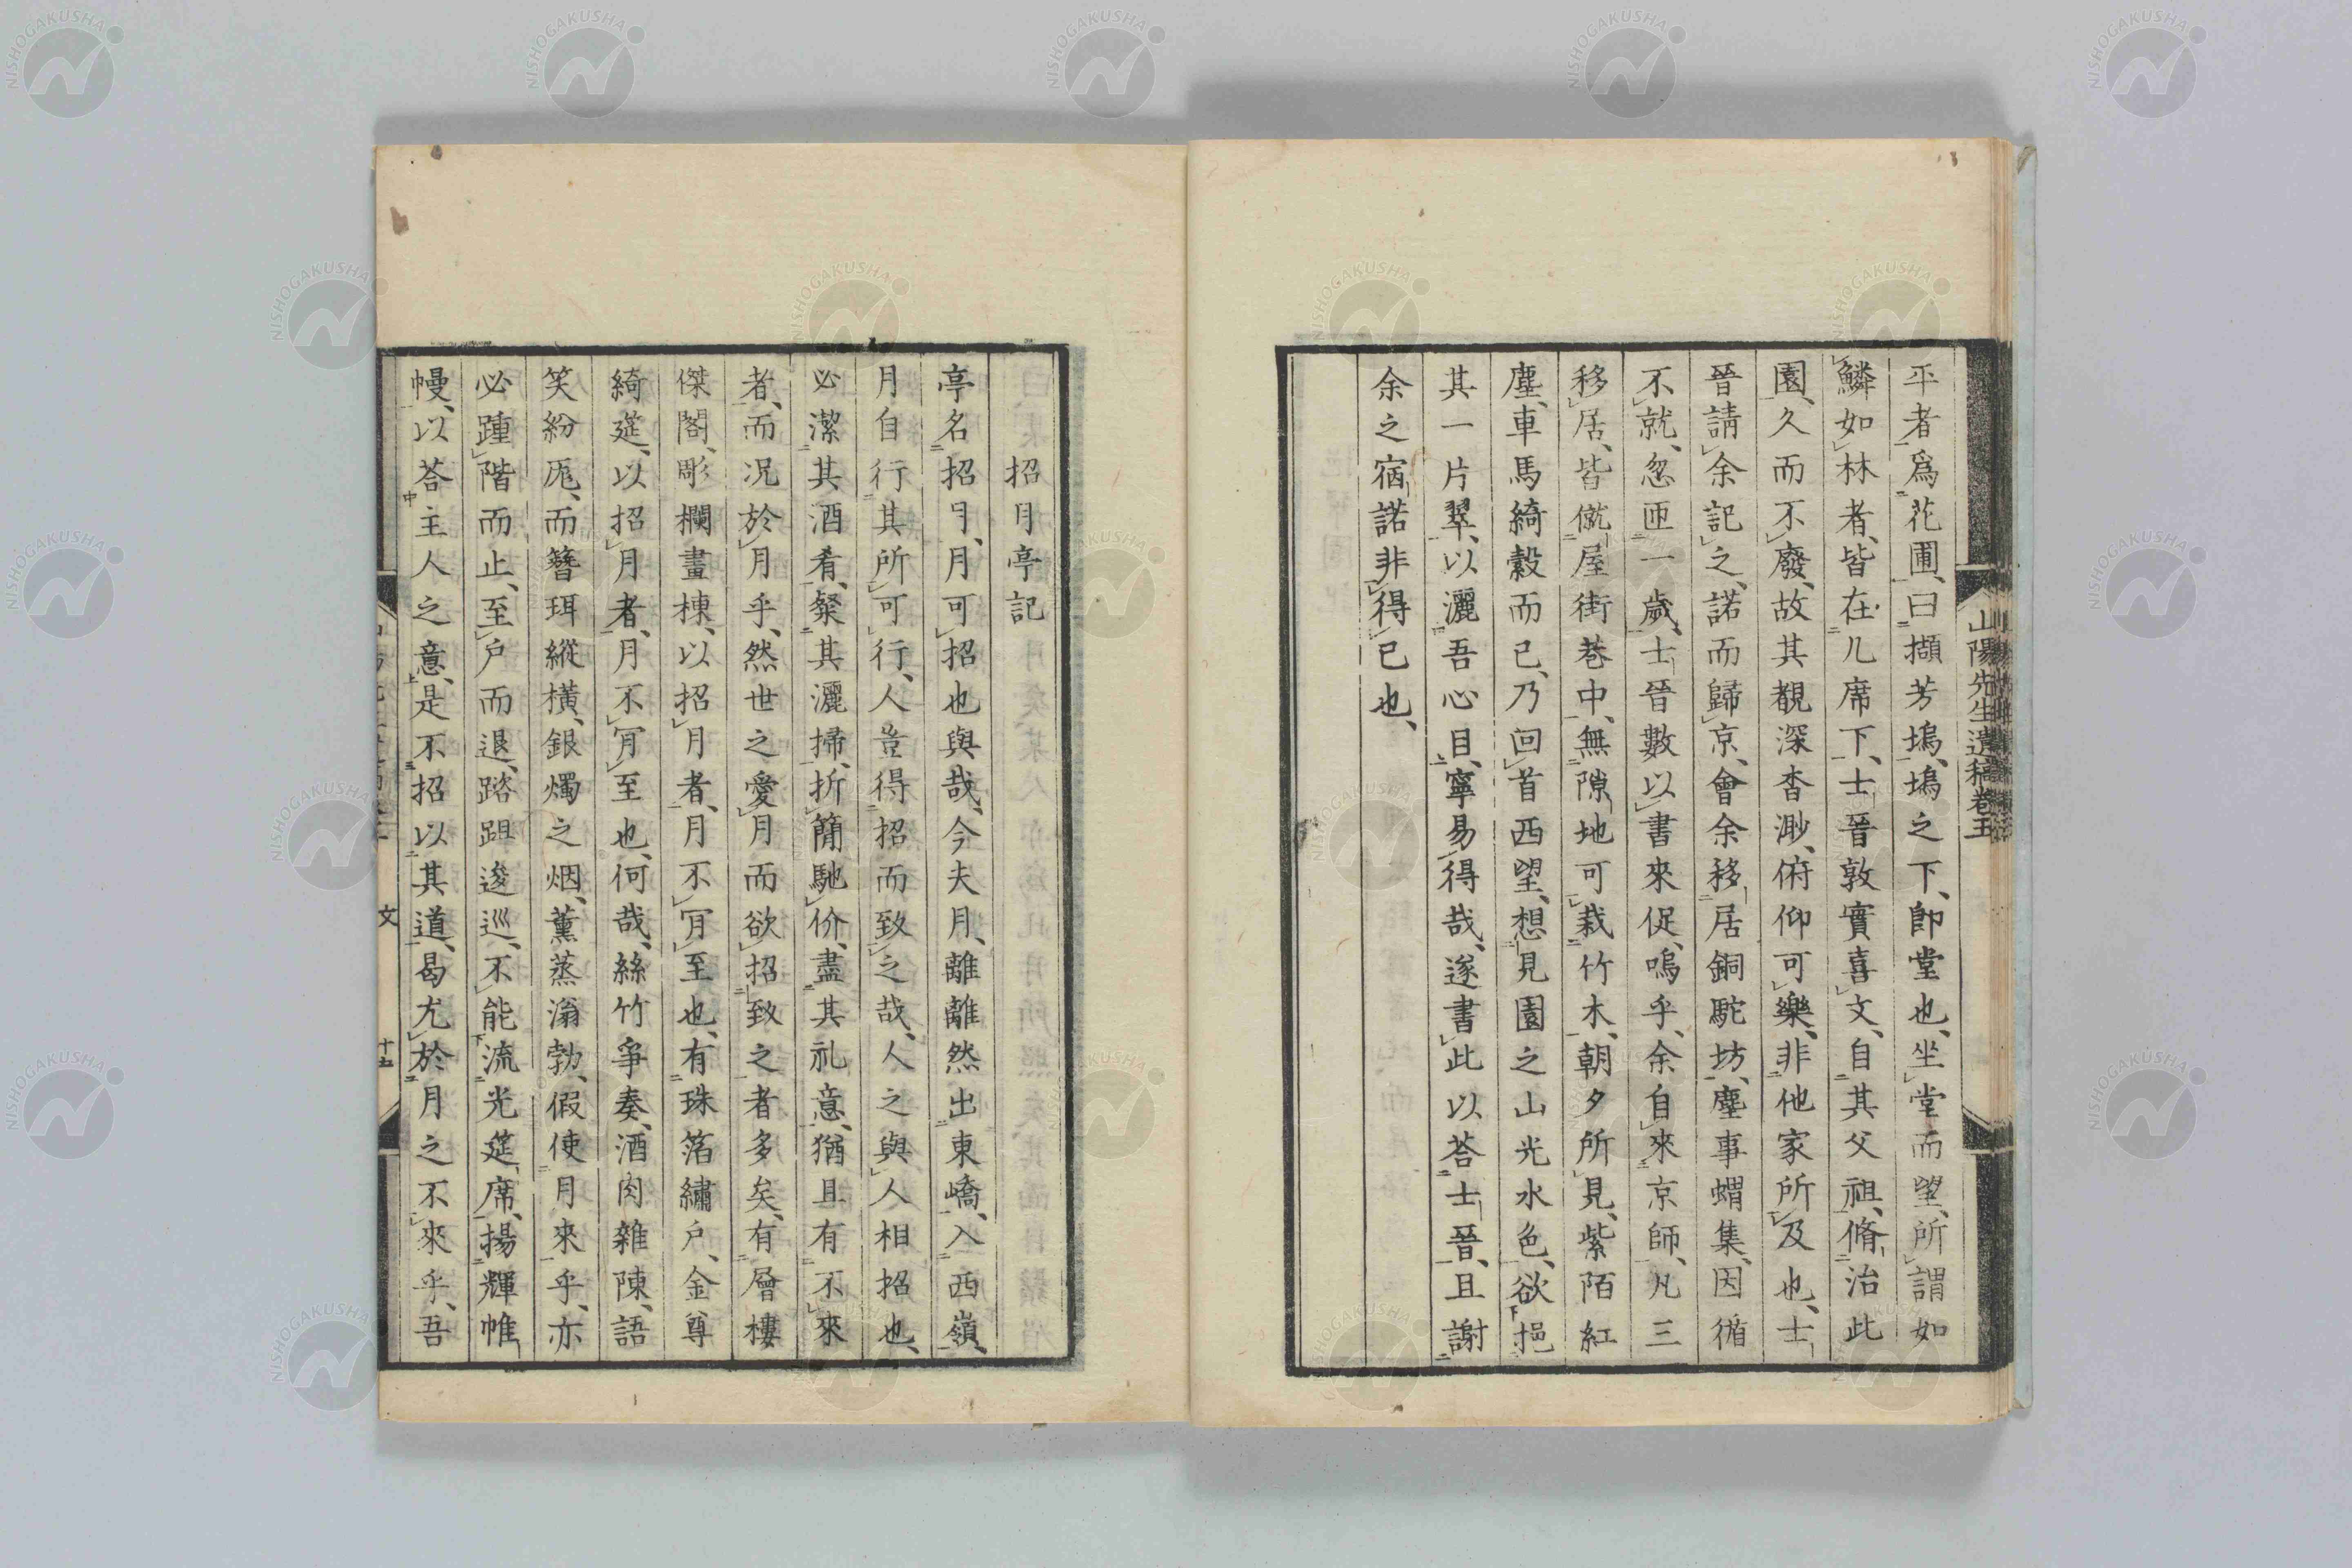 山陽先生遺稿卷五
平者、爲花圃、曰擷芳塢、塢之下、卽堂也、坐堂而望、所謂如
鱗如林者、皆在几席下、士晉敦實喜文、自其父祖、脩治此
園、久而不廢、故其覩深杳渺、俯仰可樂、非他家所及也、士
晉請余記之、諾而歸京、會余移居銅駝坊、塵事蝟集、因循
不就、忽匝一歲、士晉數以書來促、嗚乎、余自來京師、凡三
移居、皆僦屋街巷中、無隙地可栽竹木、朝夕所見、紫陌紅
塵、車馬綺縠而已、乃回首西望、想見園之山光水色、欲挹
其一片翠、以灑吾心目、寧易得哉、遂書此以荅士晉、且謝
余之宿諾非得已也、
招月亭記
亭名招月、月可招也與哉、今夫月、離離然出東嶠、入西嶺、
月自行其所可行、人豈得招而致之哉、人之與人相招也、
必潔其酒肴、粲其灑掃、折簡馳价、盡其礼意、猶且有不來
者、而況於月乎、然世之愛月而欲招致之者多矣、有層樓
傑閣、彫欄畫棟、以招月者、月不肎至也、有珠箔繡戶、金尊
綺筵、以招月者、月不肎至也、何哉、絲竹爭奏、酒肉雜陳、語
笑紛厖、而簪珥縱橫、銀燭之烟、薰蒸滃勃、假使月來乎、亦
必踵階而止、至戶而退、踏跙逡巡、不能流光筵席、揚輝帷
幔、以荅主人之意、是不招以其道、曷尤於月之不來乎、吾
文
十五